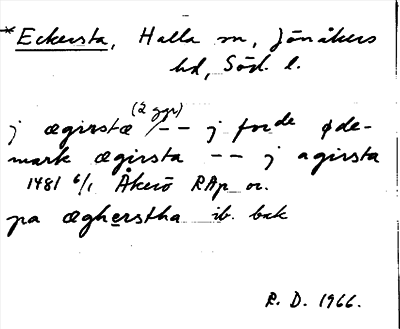 *Eckersta, Halla sn, Jönåkers
hd, Söd. l.
(2 ggr)
j ægirstæ /-- j forde øde-
mark ægirsta -- j agirsta
1481 6/1 Åkerö RAp or.
pa ægherstha ib. bak
R. D. 1966.